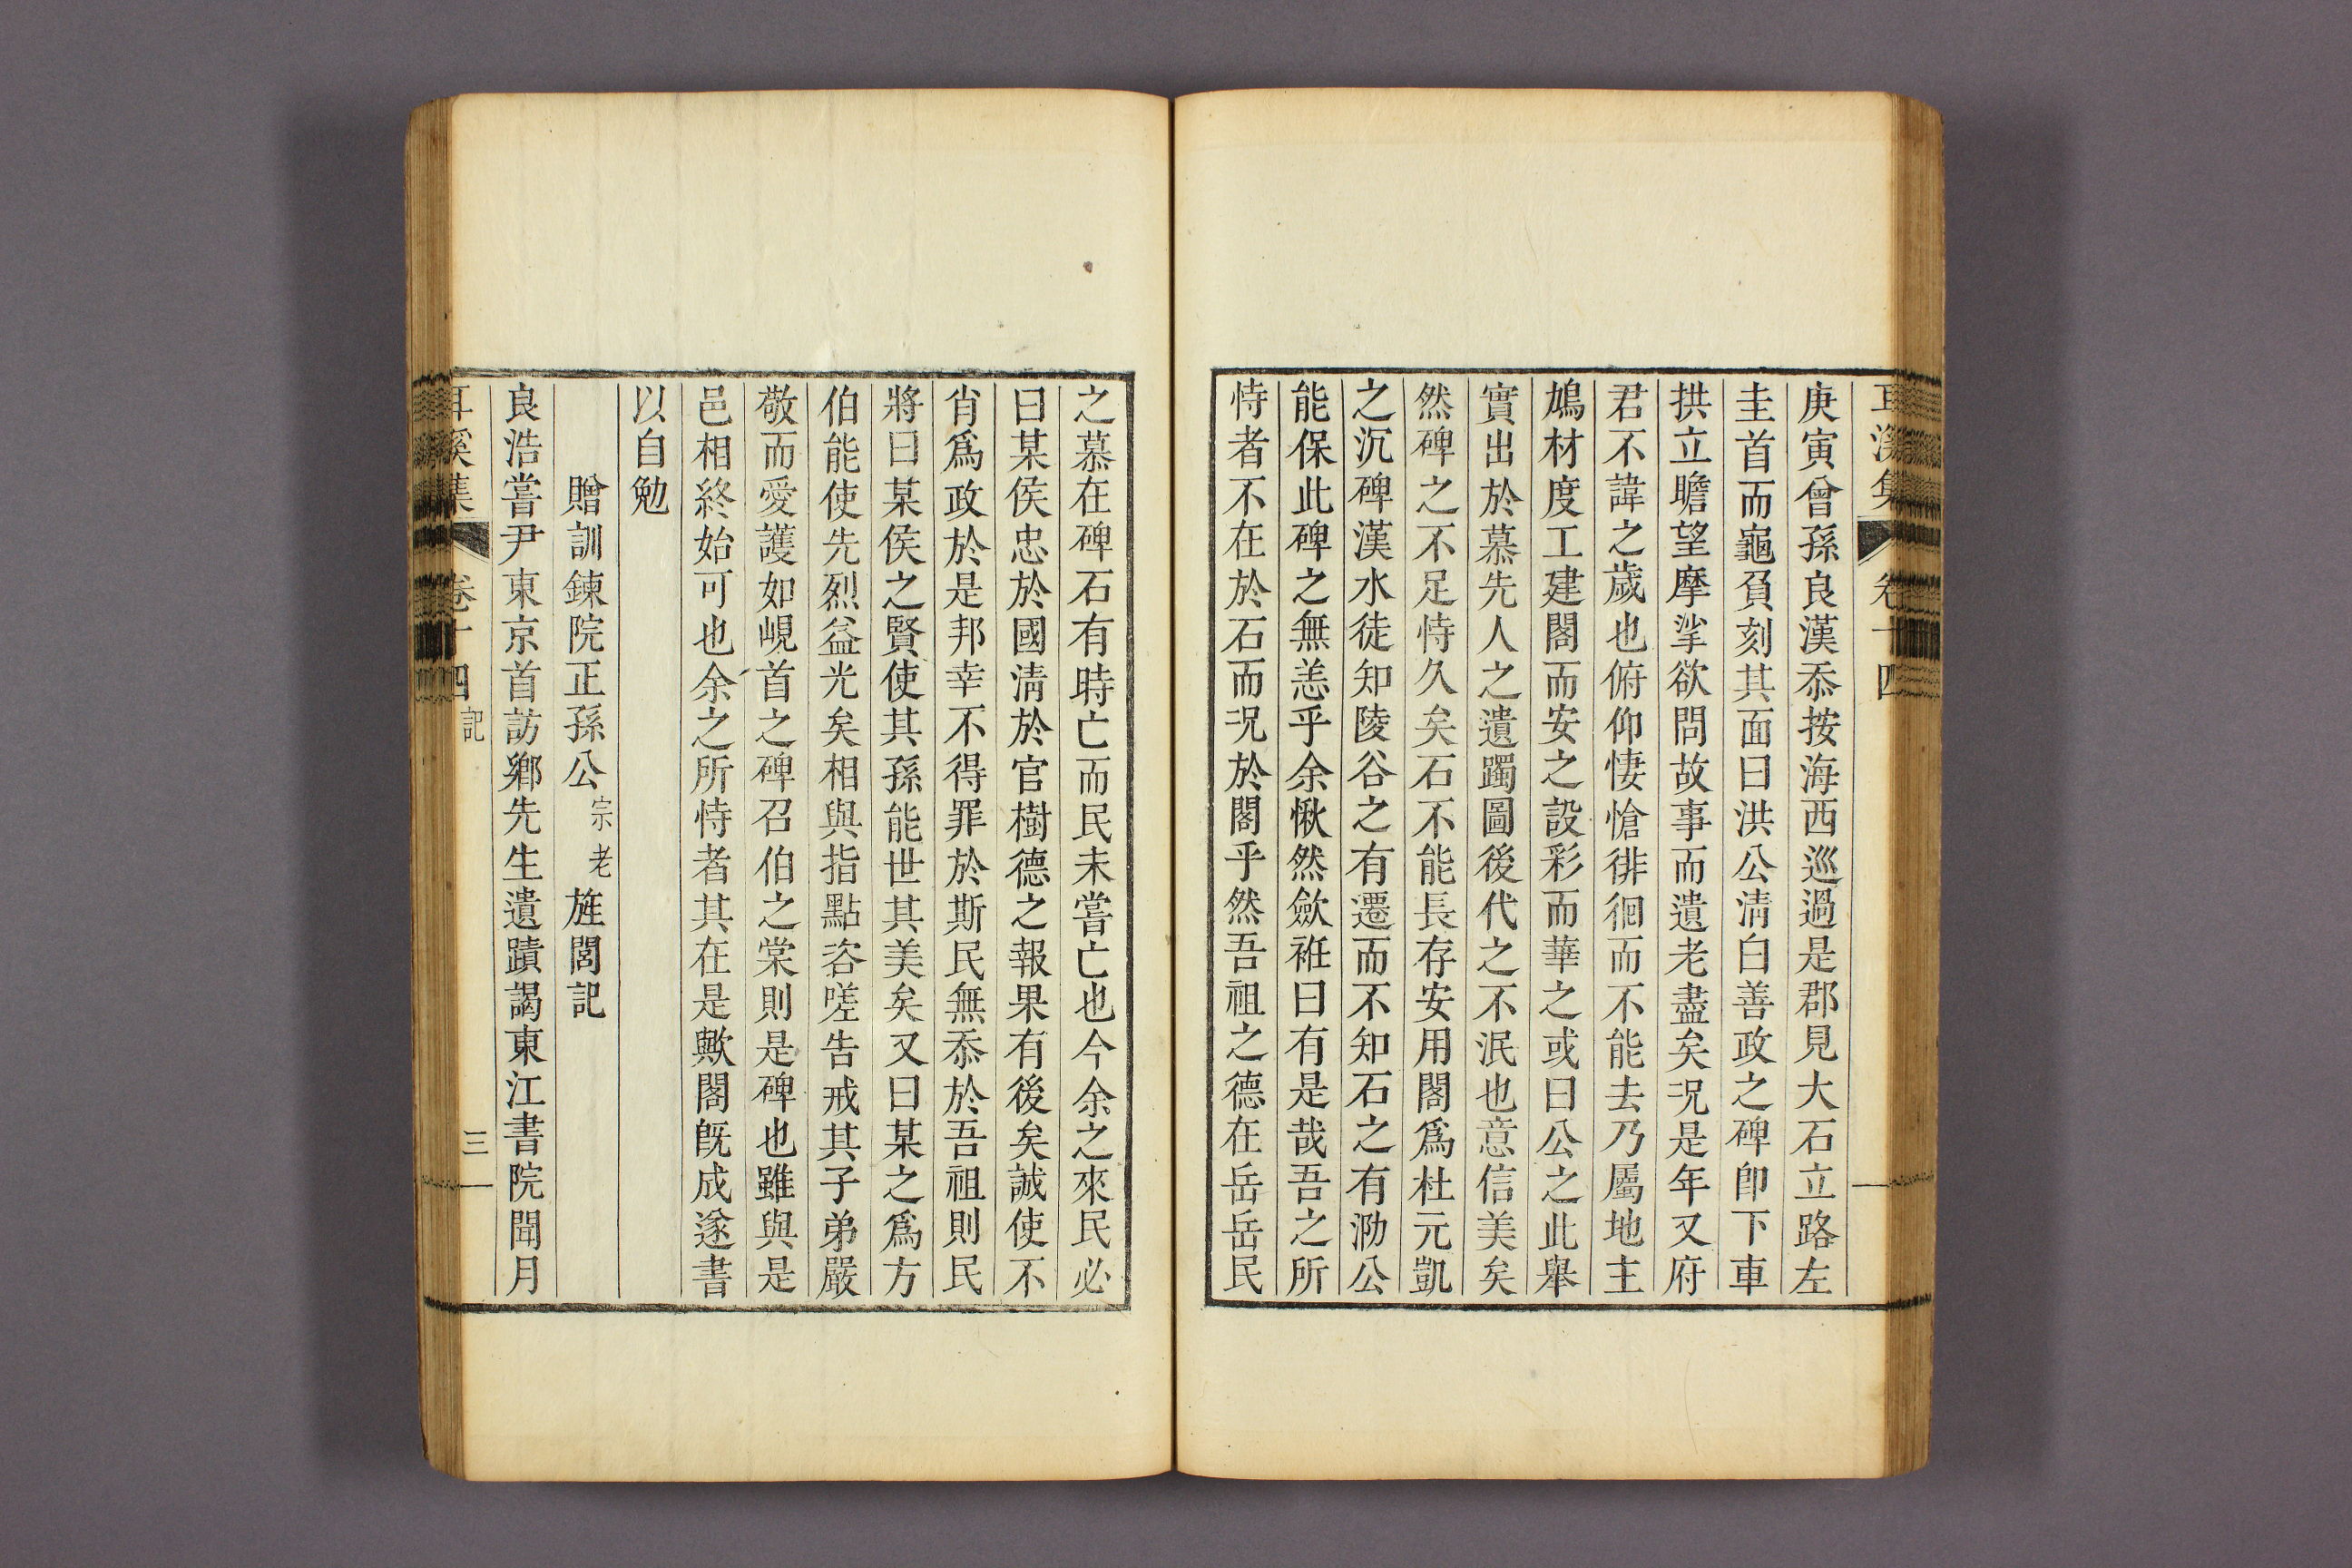 耳溪集 卷十四
庚寅曾孫良漢忝按海西巡過是郡見大石立路左
圭首而龜負刻其面曰洪公清白善政之碑卽下車
拱立瞻望摩挲欲問故事而遺老盡矣况是年又府
君不諱之歲也俯仰悽愴徘徊而不能去乃屬地主
鳩材度工建閣而安之設彩而華之或曰公之此舉
實出於慕先人之遺躅圖後代之不泯也意信美矣
然碑之不足恃久矣石不能長存安用閣爲杜元凱
之沉碑漢水徒知陵谷之有遷而不知石之有泐公
能保此碑之無恙乎余愀然歛袵曰有是哉吾之所
恃者不在於石而况於閣乎然吾祖之德在岳岳民
之慕在碑石有時亡而民未嘗亡也今余之來民必
曰某侯忠於國清於官樹德之報果有後矣誠使不
肖爲政於是邦幸不得罪於斯民無忝於吾祖則民
將曰某侯之賢使其孫能世其美矣又曰某之爲方
伯能使先烈益光矣相與指點咨嗟告戒其子弟嚴
敬而愛護如峴首之碑召伯之棠則是碑也雖與是
邑相終始可也余之所恃者其在是歟閣旣成遂書
以自勉
贈訓鍊院正孫公宗老旌閭記
良浩嘗尹東京首訪鄕先生遺蹟謁東江書院聞月
耳溪集 卷十四 記 三